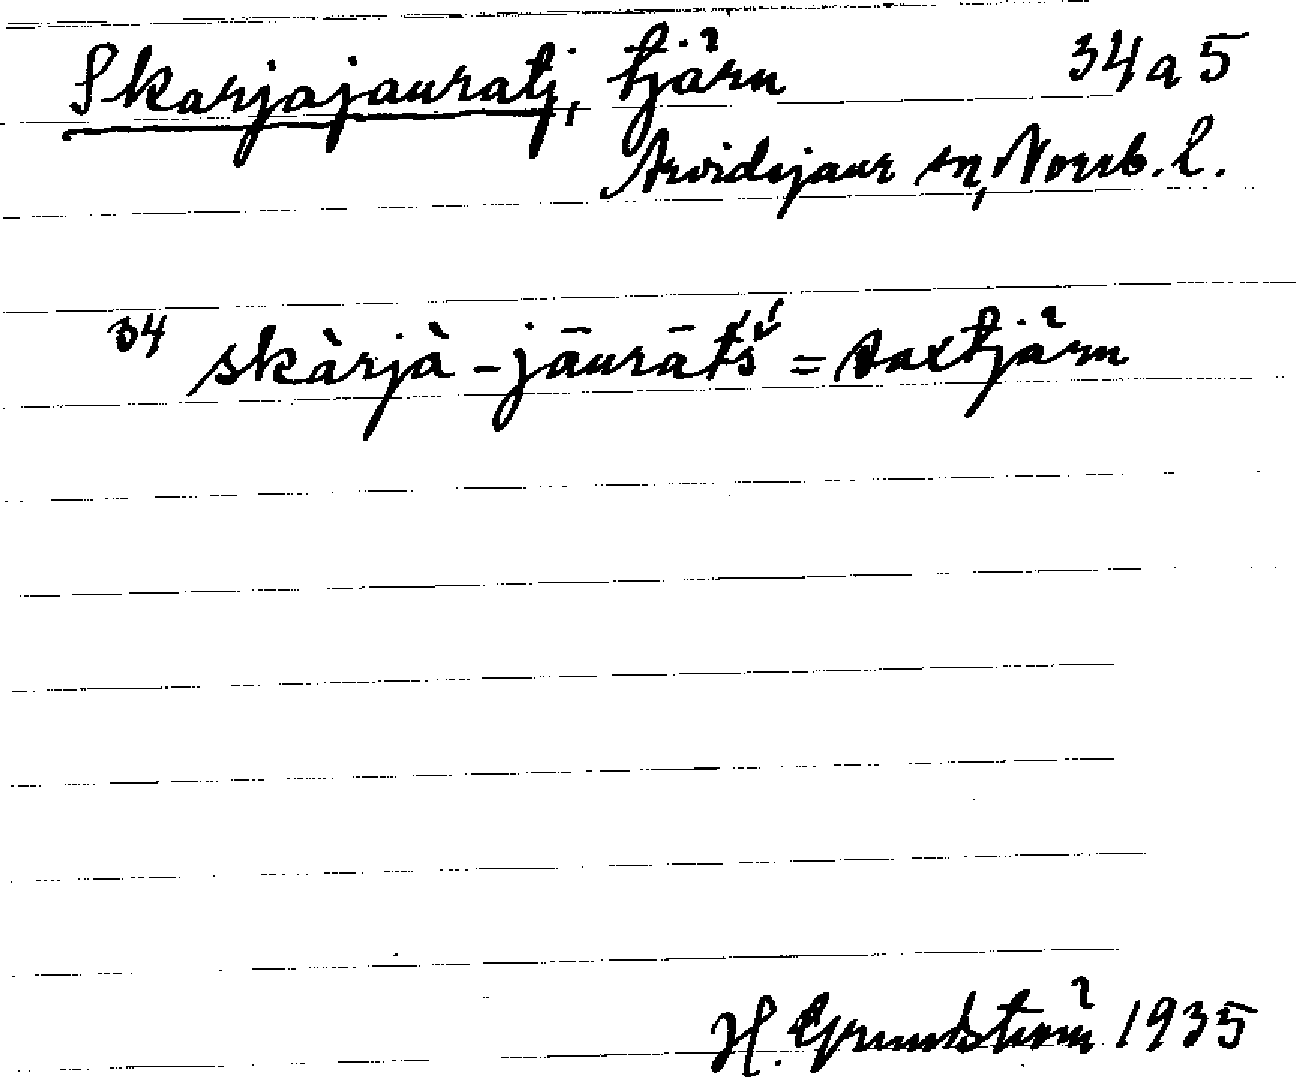 Skarjajauratj, tjärn 34a5
Arvidsjaur sn, Norrb. l.
34 skàrjà-jāurāťś = saxtjärn
H. Grundström 1935